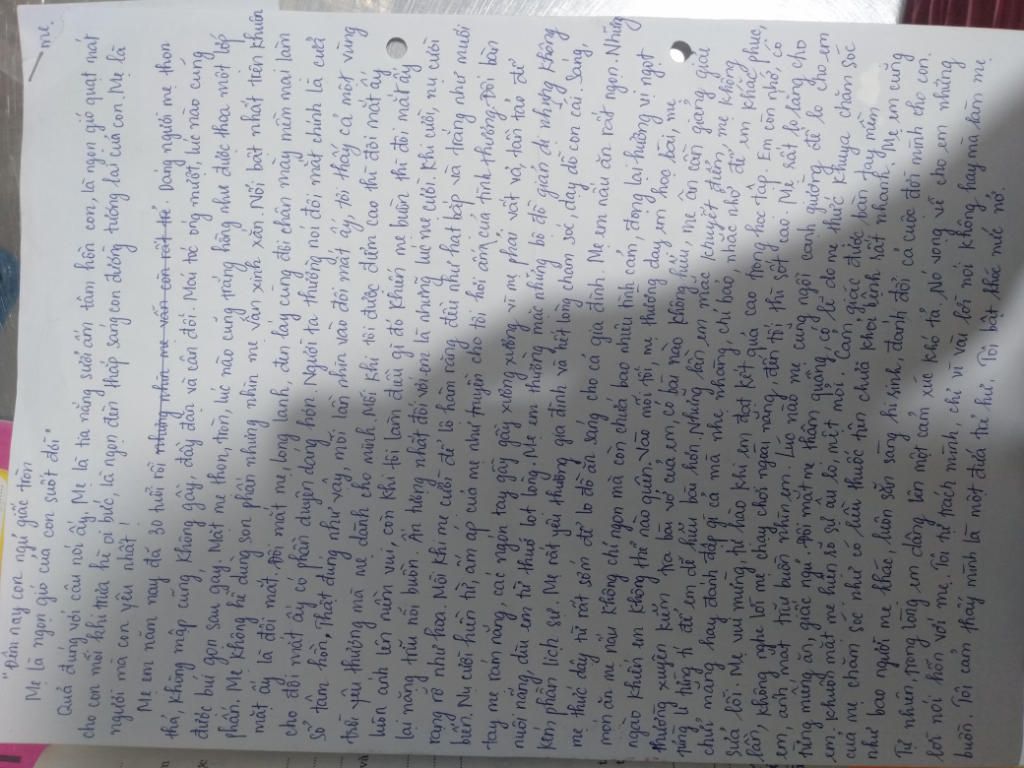 mẹ
"Đêm nay con ngủ giấc tròn
Mẹ là ngọn gió của con suốt đời"
Quả đúng với câu nói ấy, Mẹ là tia nắng sưởi ấm tâm hồn con, là ngọn gió quạt mát
cho con mỗi khi trưa hè oi bức, là ngọn đèn thắp sáng con đường tương lai của con. Mẹ là
người mà con yêu nhất!
Mẹ em năm nay đã 30 tuổi rồi nhưng nhìn mẹ vẫn còn rất trẻ. Dáng người mẹ thon
thả, không mập cũng không gầy, đầy đặn và cân đối. Mái tóc óng mượt, lúc nào cũng
được búi gọn sau gáy. Mặt mẹ thon, tròn, lúc nào cũng trắng hồng như được thoa một lớp
phấn. Mẹ không hề dùng son phấn nhưng nhìn mẹ vẫn xinh xắn. Nổi bật nhất trên khuôn
mặt ấy là đôi mắt. Đôi mắt mẹ, long lanh, đen láy cùng đôi chân mày mềm mại làm
cho đôi mắt ấy có phần duyên dáng hơn. Người ta thường nói đôi mắt chính là cửa
sổ tâm hồn, Thật đúng như vậy, mỗi lần nhìn vào đôi mắt ấy, tôi thấy cả một vùng
trời yêu thương mà mẹ dành cho mình. Mỗi khi tôi được điểm cao thì đôi mắt ấy
luôn ánh lên niềm vui, còn khi tôi làm điều gì đó khiến mẹ buồn thì đôi mắt ấy
lại nặng trĩu nỗi buồn. Ấn tượng nhất đối với em là những lúc mẹ cười. Khi cười, nụ cười
rạng rỡ như hoa. Mỗi khi mẹ cười để lộ hàm răng đều như hạt bắp và trắng như muối
biển. Nụ cười hiền từ, ấm áp của mẹ như truyền cho tôi hơi ấm của tình thương. Đôi bàn
tay mẹ rám nắng, các ngón tay gầy gầy xương xương vì mẹ phải vất vả, tần tảo để
nuôi nấng, dìu em từ thuở lọt lòng. Mẹ em thường mặc những bộ đồ giản dị nhưng không
kém phần lịch sự. Mẹ rất yêu thương gia đình và hết lòng chăm sóc, dạy dỗ con cái. Sáng,
mẹ thức dậy từ rất sớm để lo đồ ăn sáng cho cả gia đình. Mẹ em nấu ăn rất ngon. Những
món ăn mẹ nấu không chỉ ngon mà còn chứa bao nhiêu tình cảm, đọng lại hương vị ngọt
ngào khiến em không thể nào quên. Vào mỗi tối, mẹ thường dạy em học bài, mẹ
thường xuyên kiểm tra bài vở của em, có bài nào không hiểu, mẹ ân cần giảng giải
từng li từng tí để em dễ hiểu bài hơn. Những lần em mắc khuyết điểm, mẹ không
chửi mắng hay đánh đập gì cả mà nhẹ nhàng, chỉ bảo, nhắc nhở để em khắc phục,
sửa lỗi. Mẹ vui mừng, tự hào khi em đạt kết quả cao trong học tập. Em còn nhớ, có
lần, không nghe lời mẹ chạy chơi ngoài nắng, đến tối thì sốt cao. Mẹ rất lo lắng cho
em, ánh mắt trìu buồn nhìn em. Lúc nào mẹ cũng ngồi cạnh giường để lo cho em
từng miếng ăn, giấc ngủ. Đôi mắt mẹ thâm quầng, có lẽ do mẹ thức khuya chăm sóc
em. Khuôn mặt mẹ hiện rõ sự âu lo, mệt mỏi. Cảm giác được bàn tay mềm
của mẹ chăm sóc như có liều thuốc tiên chữa khỏi bệnh rất nhanh. Mẹ em cũng
như bao người mẹ khác, luôn sẵn sàng hi sinh, đánh đổi cả cuộc đời mình cho con.
Tự nhiên, trong lòng em dâng lên một cảm xúc khó tả. Nó vọng về cho em những
lời nói hỗn với mẹ. Tôi tự trách mình, chỉ vì vài lời nói không hay mà làm mẹ
buồn. Tôi cảm thấy mình là một đứa trẻ hư. Tôi bật khóc nức nở.